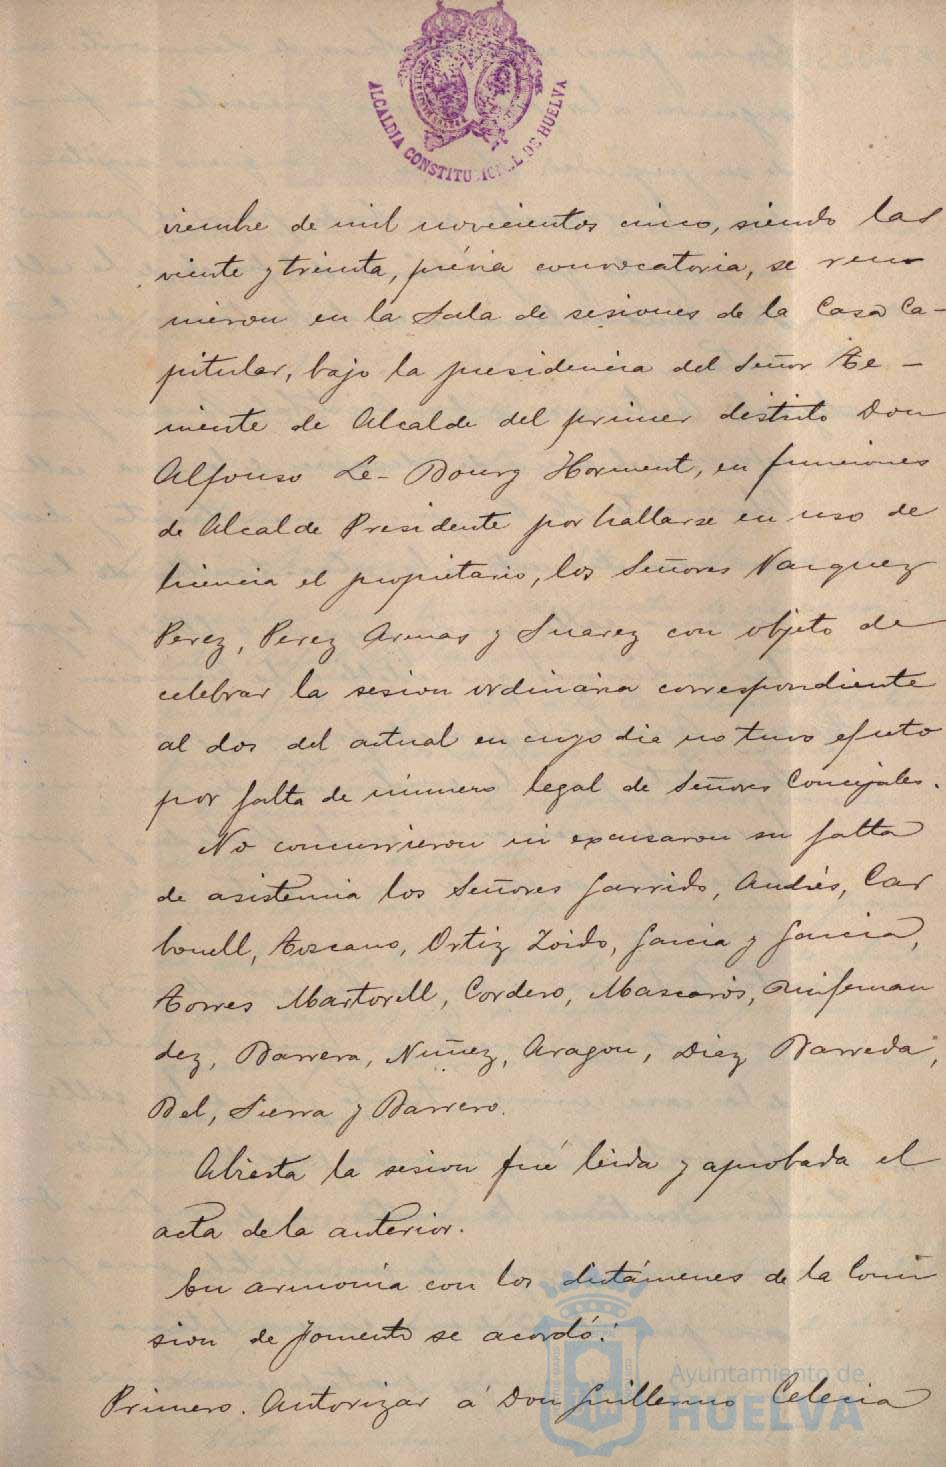 ALCALDIA CONSTITUCIONAL DE HUELVA
viembre de mil novecientos cinco, siendo las
veinte y treinta, prévia convocatoria, se reu
nieron en la Sala de sesiones de la Casa Ca-
pitular, bajo la presidencia del Señor Te-
niente de Alcalde del primer distrito Don
Alfonso Le-Bourg Horment, en funciones
de Alcalde Presidente por hallarse en uso de
licencia el propietario, los Señores Vazquez
Perez, Perez Armas y Suarez con objeto de
celebrar la sesion ordinaria correspondiente
al dos del actual en cuyo dia no tuvo efecto
por falta de número legal de Señores Concejales.
No concurrieron ni excusaron su falta
de asistencia los Señores Garrido, Andrés, Car
bonell, Toscano, Ortiz Zoido, Garcia y Garcia,
Torres Martorell, Cordero, Mascarós,
dez, Barrera, Nuñez, Aragon, Diez Barreda,
Bel, Sierra y Barrero.
Abierta la sesion fué leida y aprobada el
acta de la anterior.
En armonia con los dictámenes de la Comi
sion de Fomento se acordó:
Primero. Autorizar á Don Guillermo Celecia
Ayuntamiento de
HUELVA